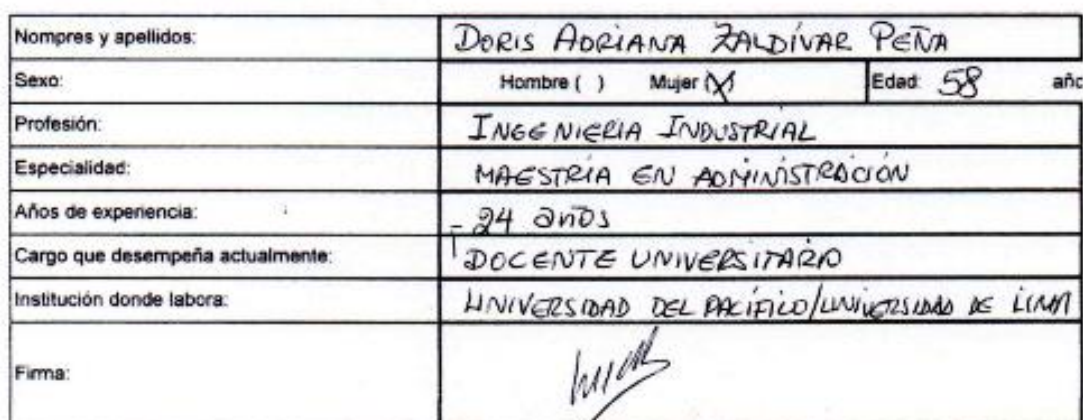 Nompres y apellidos: DORIS ADRIANA ZALDÍVAR PEÑA
Sexo: Hombre ( ) Mujer (X) Edad: 58 año
Profesión: INGENIERIA INDUSTRIAL
Especialidad: MAESTRÍA EN ADMINISTRACIÓN
Años de experiencia: 24 años
Cargo que desempeña actualmente: DOCENTE UNIVERSITARIO
Institución donde labora: UNIVERSIDAD DEL PACÍFICO/UNIVERSIDAD DE LIMA
Firma: